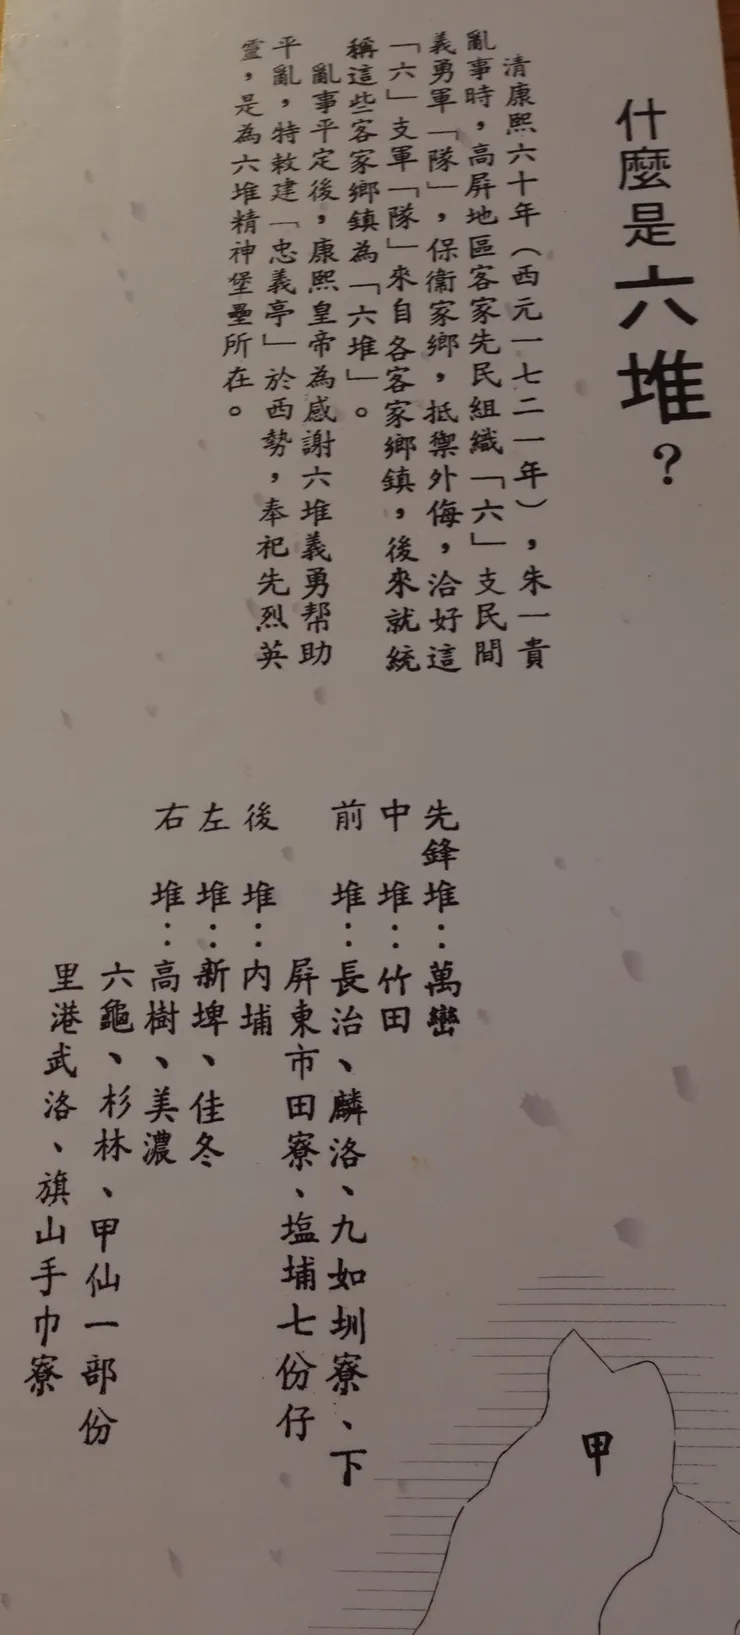 什麼是六堆？
清康熙六十年（西元一七二一年），朱一貴
亂事時，高屏地區客家先民組織「六」支民間
義勇軍「隊」，保衞家鄉，抵禦外侮，洽好這
「六」支軍「隊」來自各客家鄉鎮，後來就統
稱這些客家鄉鎮為「六堆」。
亂事平定後，康熙皇帝為感謝六堆義勇幫助
平亂，特敕建「忠義亭」於西勢，奉祀先烈英
靈，是為六堆精神堡壘所在。
先鋒堆：萬巒
中　堆：竹田
前　堆：長治、麟洛、九如圳寮、下
屏東市田寮、塩埔七份仔
後　堆：內埔
左　堆：新埤、佳冬
右　堆：高樹、美濃
六龜、杉林、甲仙一部份
里港武洛、旗山手巾寮
甲